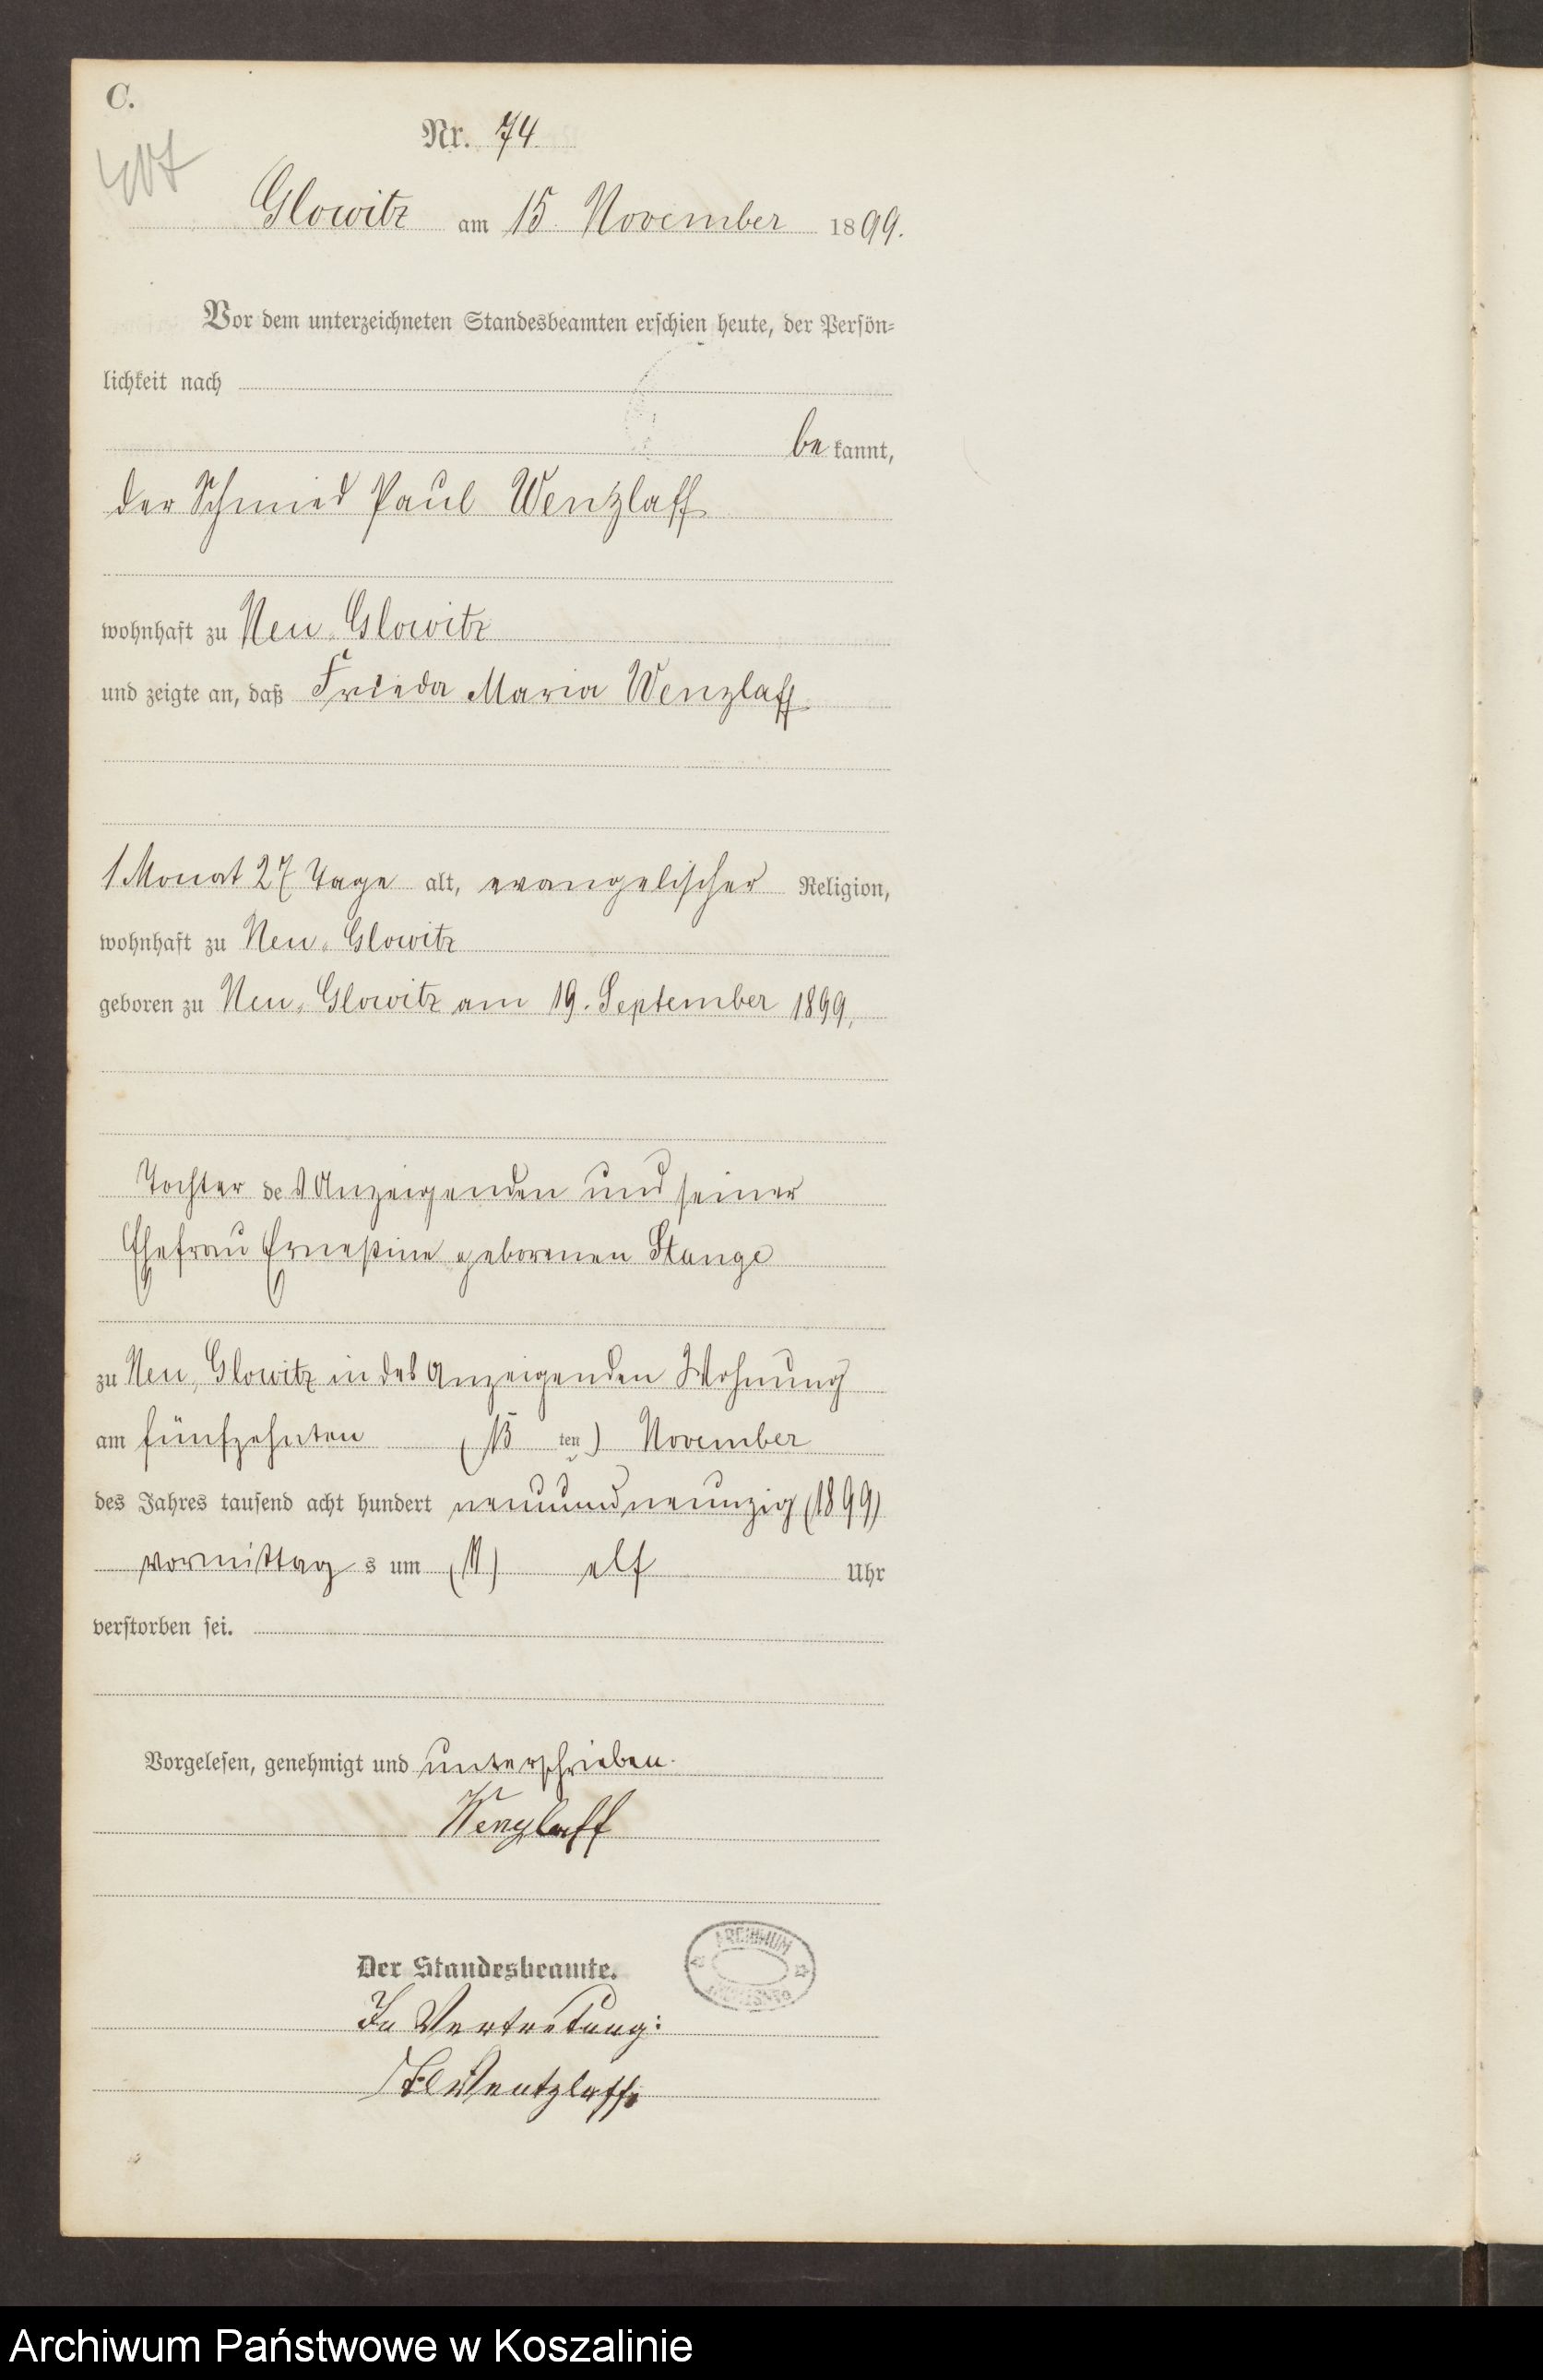 C.
Nr. 74
Glowitz am 15. November 1899.
Vor dem unterzeichneten Standesbeamten erschien heute, der Persön=
lichkeit nach
be kannt,
der Schmied Paul Wenzlaff
wohnhaft zu Neu-Glowitz
und zeigte an, daß Frieda Maria Wenzlaff
1 Monat 27 Tage alt, evangelischer Religion,
wohnhaft zu Neu-Glowitz
geboren zu Neu-Glowitz am 19. September 1899,
Tochter des Anzeigenden und seiner
Ehefrau Ernestine geborenen Stange
zu Neu-Glowitz in des Anzeigenden Wohnung
am fünfzehnten (15 ten) November
des Jahres tausend acht hundert neunundneunzig (1899)
vormittag s um (11) elf Uhr
verstorben sei.
Vorgelesen, genehmigt und unterschrieben.
Wenzlaff
Der Standesbeamte.
ARCHIWUM
In Vertretung:
Wentzlaff.
Archiwum Państwowe w Koszalinie